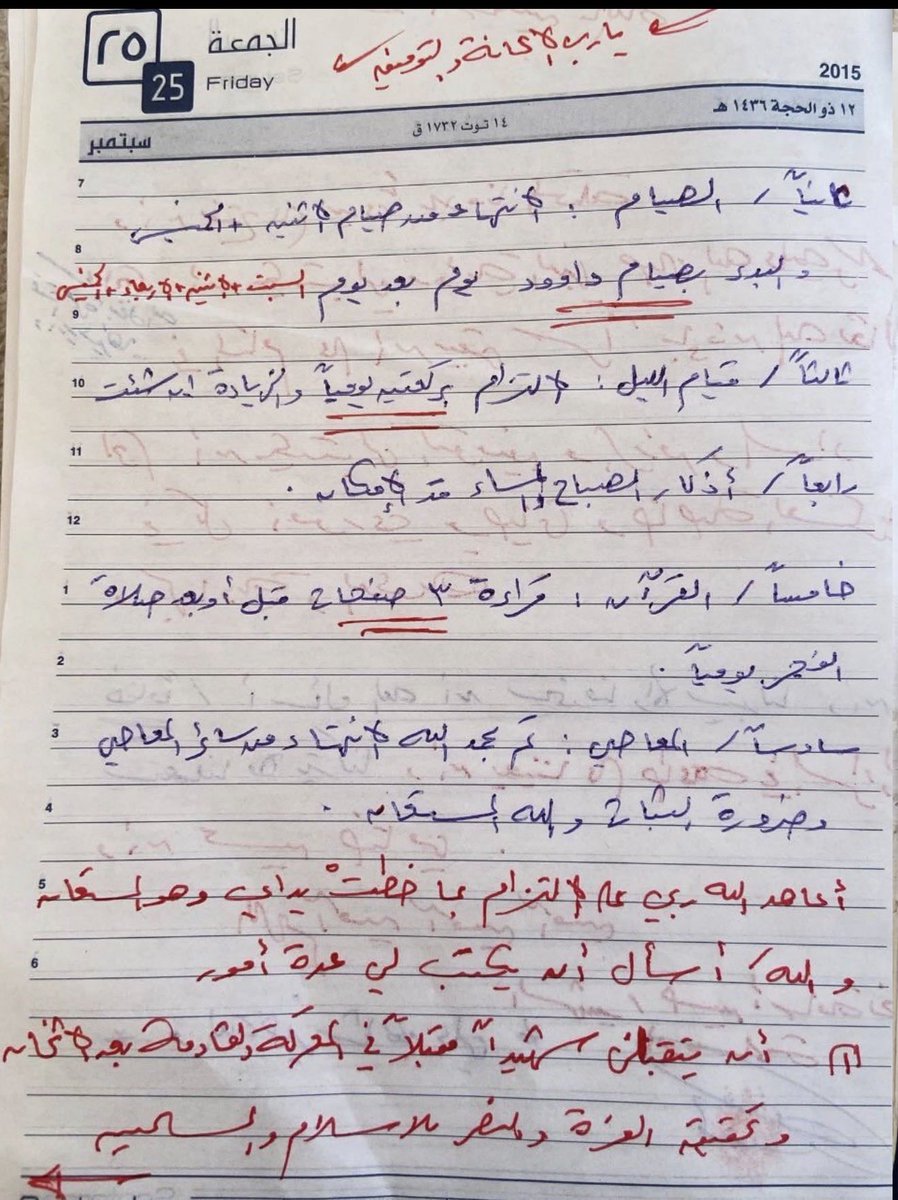 ٢٥ الجمعة
25 Friday
يارب الإعانة والتوفيق
2015
١٢ ذو الحجة ١٤٣٦ هـ
١٤ توت ١٧٣٢ ق
سبتمبر
7
ثانياً / الصيام : الانتهاء من صيام الاثنين + الخميس
8
والبدء بصيام داوود يوم بعد يوم السبت + الاثنين + الاربعاء + الخميس
9
ثالثاً / قيام الليل : الالتزام بركعتين يومياً والزيادة إن شئت
10
11
رابعاً / أذكار الصباح والمساء قدر الإمكان .
12
خامساً / القرآن : قراءة ٣ صفحات قبل أو بعد صلاة
1
الفجر يومياً .
2
سادساً / المعاصي : تم بحمد الله الانتهاء من سائر المعاصي
3
وضرورة الثبات والله المستعان .
4
أعاهد الله ربي على الالتزام بما خطت يداي وهو المستعان
5
والله / أسأل أن يكتب لي عدة أمور
6
[١] أن يتقبلني شهيداً مقبلاً في المعركة القادمة بعد الاثخان
وتحقيق العزة والنصر للاسلام والمسلمين